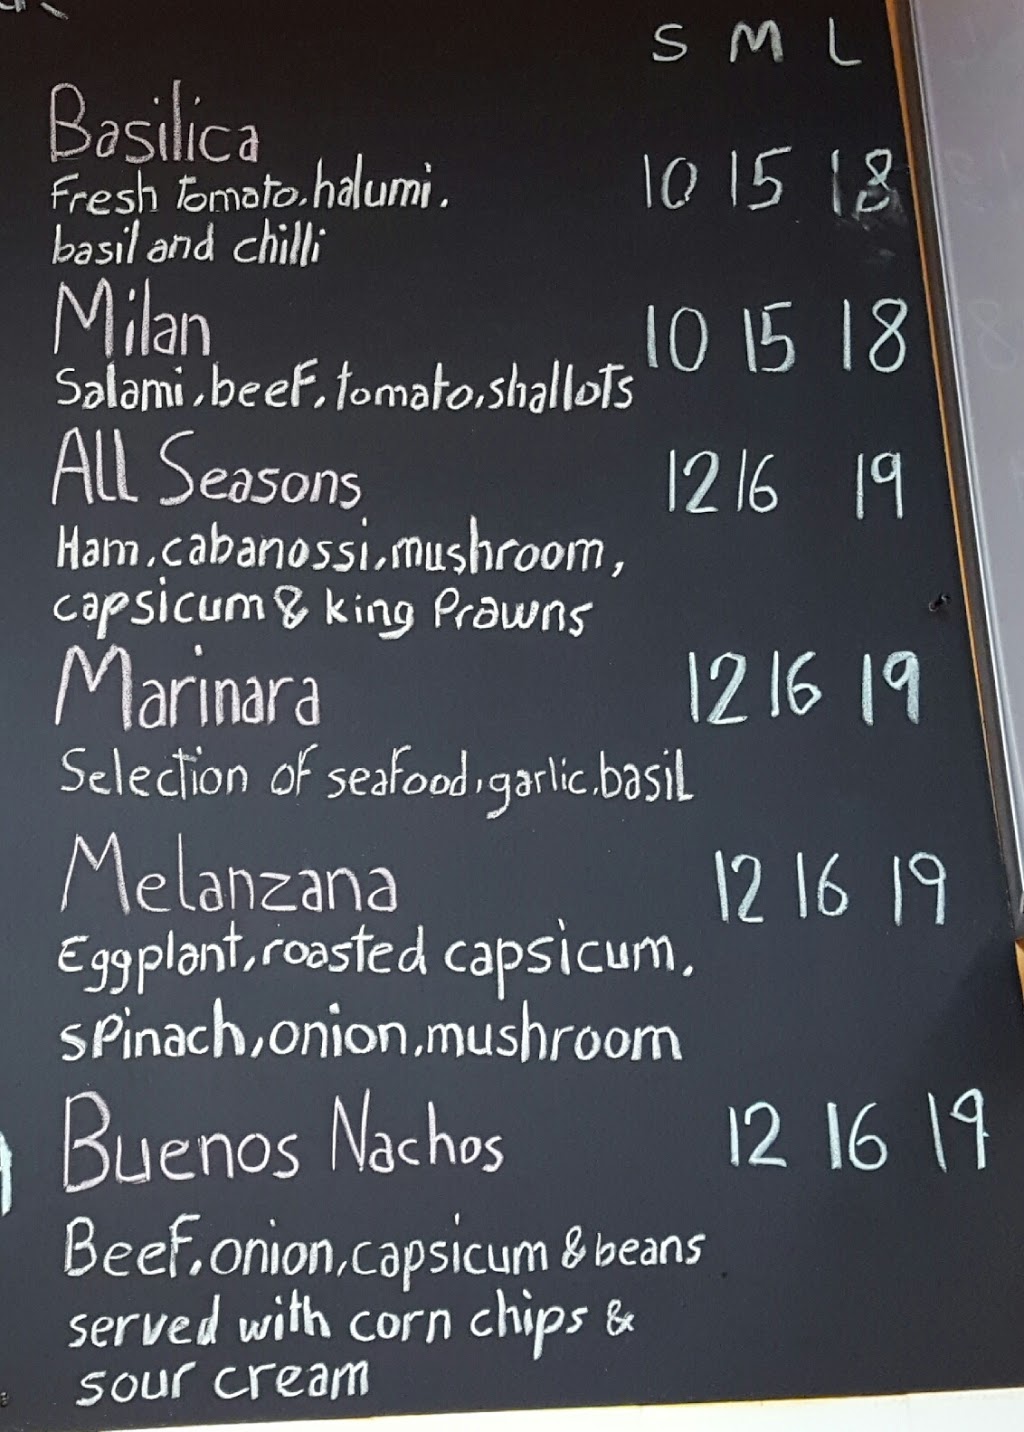 S M L
Basilica
Fresh tomato, halumi, 10 15 18
basil and chilli
Milan 10 15 18
Salami, beef, tomato, shallots
All Seasons 12 16 19
Ham, cabanossi, mushroom,
capsicum & king Prawns
Marinara 12 16 19
Selection of seafood, garlic, basil
Melanzana 12 16 19
Eggplant, roasted capsicum,
spinach, onion, mushroom
Buenos Nachos 12 16 19
Beef, onion, capsicum & beans
served with corn chips &
sour cream